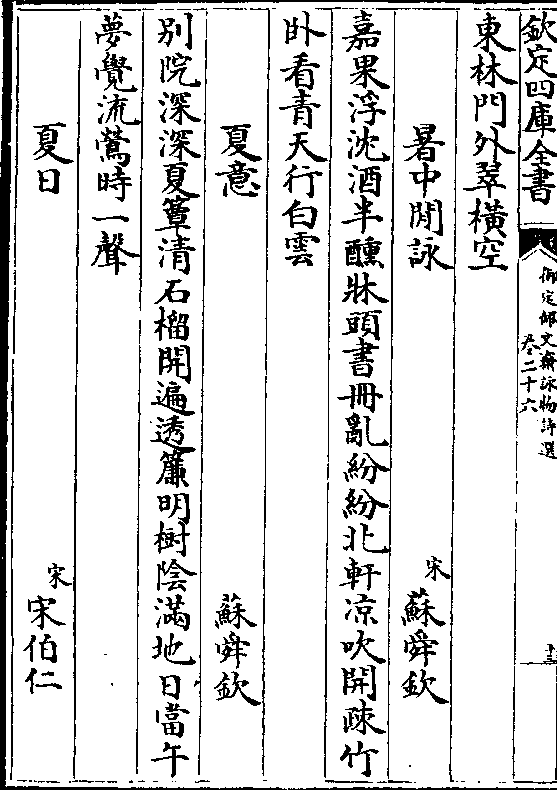 欽定四庫全書
御定佩文齋詠物詩選
卷二十六
十三
東林門外翠橫空
暑中閒詠
宋
蘇舜欽
嘉果浮沈酒半醺牀頭書冊亂紛紛北軒凉吹開疎竹
卧看青天行白雲
夏意
蘇舜欽
別院深深夏簟清石榴開遍透簾明樹陰滿地日當午
夢覺流鶯時一聲
夏日
宋
宋伯仁